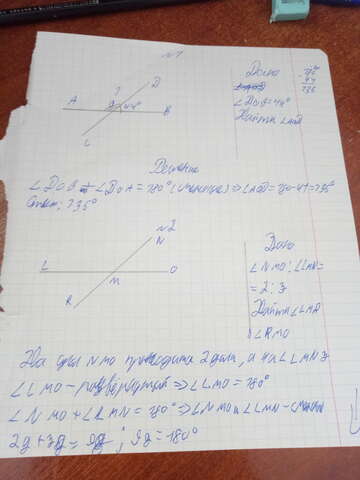 №1
Дано
∠DOB=44°
Найти ∠AOD
180
44
136
A
D
44°
B
C
Решение
∠DOB и ∠DOA = 180° (смежные) => ∠AOD = 180-44=136°
Ответ: 136°
№2
N
L
O
M
R
Дано
∠NMO : ∠LMN =
= 2 : 3
Найти ∠LMR
∠RMO
На угол NMO приходится 2 доли, а на ∠LMN 3
∠LMO - развернутый => ∠LMO = 180°
∠NMO + ∠LMN = 180° => ∠NMO и ∠LMN - смежные
9 = 180°